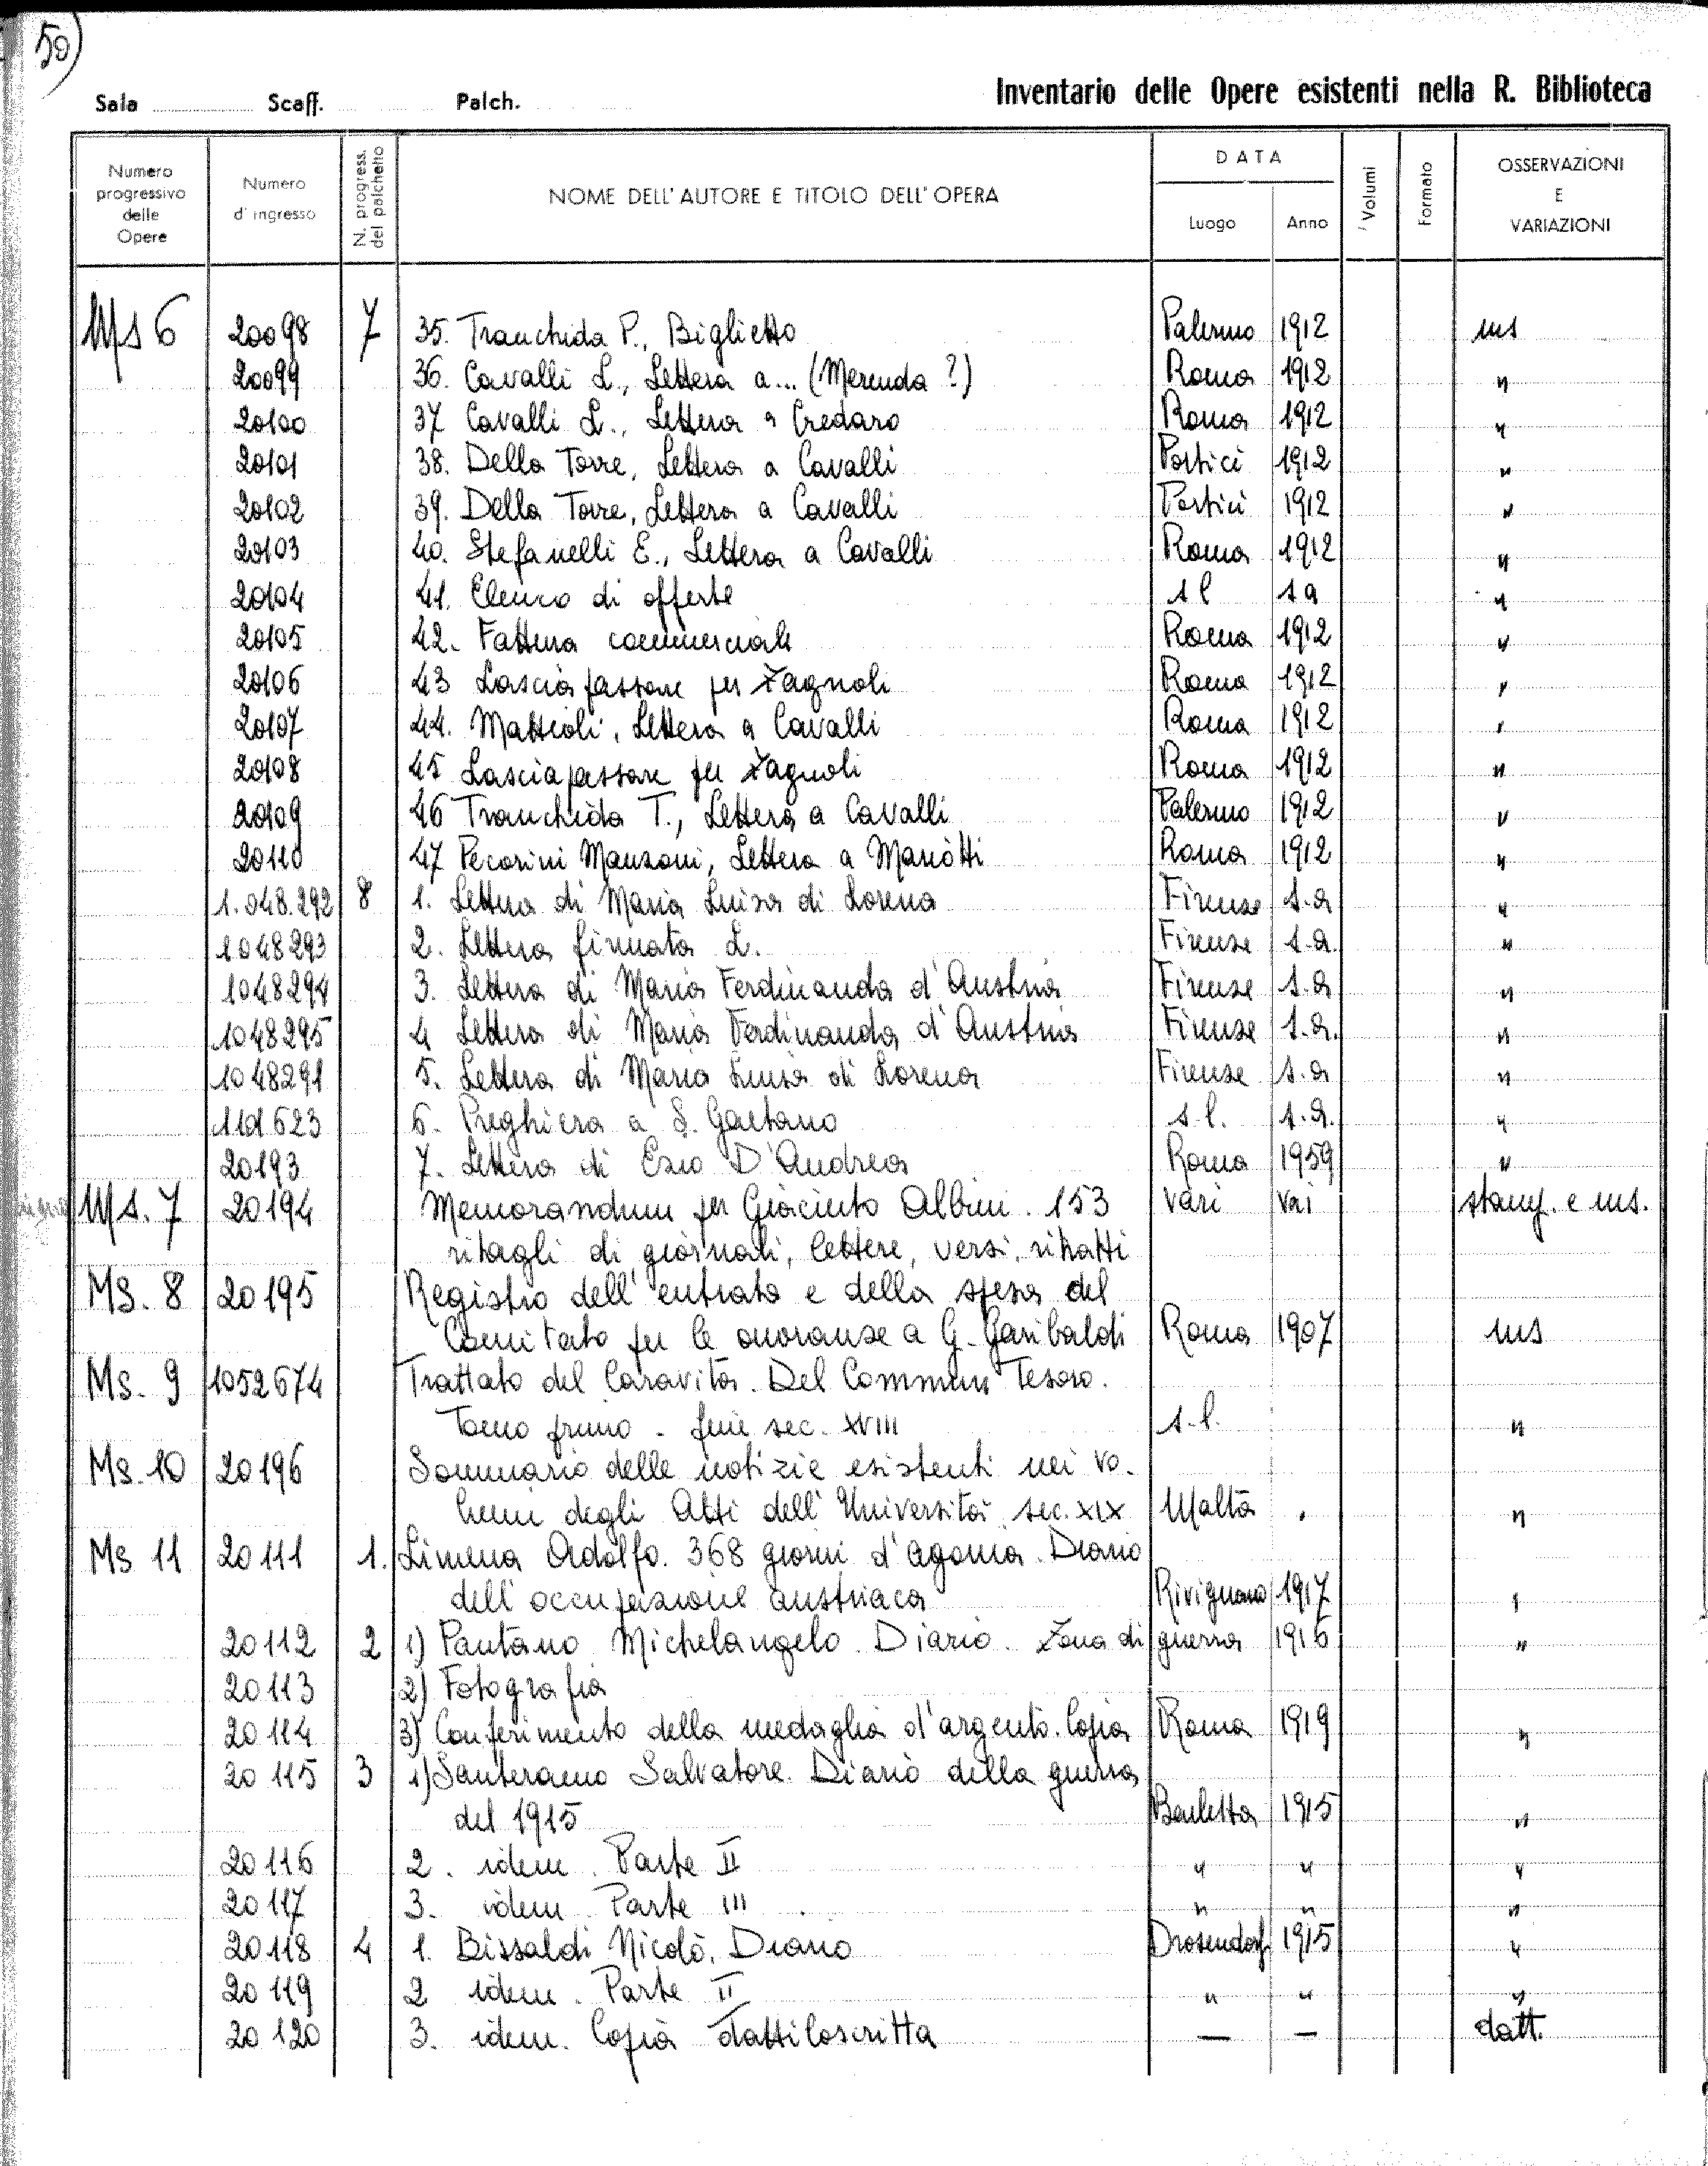 50)
Sala Scaff. Palch. Inventario delle Opere esistenti nella R. Biblioteca
Numero progressivo delle Opere | Numero d'ingresso | N. progress. del palchetto | NOME DELL'AUTORE E TITOLO DELL'OPERA | DATA Luogo Anno | Volumi | Formato | OSSERVAZIONI E VARIAZIONI
Ms 6 20098 7 35. Tranchida P., Biglietto Palermo 1912 ms
20099 36. Cavalli L., Lettera a... (Merenda ?) Roma 1912 "
20100 37 Cavalli L., Lettera a Credaro Roma 1912 "
20101 38. Della Torre, Lettera a Cavalli Portici 1912 "
20102 39. Della Torre, Lettera a Cavalli Portici 1912 "
20103 40. Stefanelli E., Lettera a Cavalli Roma 1912 "
20104 41. Elenco di offerte s l s a "
20105 42. Fattura commerciale Roma 1912 "
20106 43 Lasciapassare per Zagnoli Roma 1912 "
20107 44. Mattioli, Lettera a Cavalli Roma 1912 "
20108 45 Lasciapassare per Zagnoli Roma 1912 "
20109 46 Tranchida T., Lettera a Cavalli Palermo 1912 "
20110 47 Pecorini Manzoni, Lettera a Mariotti Roma 1912 "
1.048.292 8 1. Lettera di Maria Luisa di Lorena Firenze s.a "
1048293 2. Lettera firmata L. Firenze s.a. "
1048294 3. Lettera di Maria Ferdinanda d'Austria Firenze s.a "
1048295 4 Lettera di Maria Ferdinanda d'Austria Firenze s.a. "
1048291 5. Lettera di Maria Luisa di Lorena Firenze s.a "
623 6. Preghiera a S. Gaetano s.l. s.a. "
20193 7. Lettera di Ezio D'Andrea Roma 1959 "
Ms. 7 20194 Memorandum per Giacinto Albini. 153 vari vari stamp. e ms.
ritagli di giornali, lettere, versi, ritratti
Ms. 8 20195 Registro dell'entrata e della spesa del
Comitato per le onoranze a G. Garibaldi Roma 1907 ms
Ms. 9 1052674 Trattato del Caravita. Del Commun Tesoro.
Tomo primo - fine sec. XVIII s.l. "
Ms. 10 20196 Sommario delle notizie esistenti nei vo-
lumi degli Atti dell'Università. sec. XIX Malta . "
Ms 11 20111 1. Limena Adolfo. 368 giorni d'agonia. Diario
dell'occupazione austriaca Rivignano 1917 "
20112 2 1) Pantano Michelangelo. Diario. Zona di guerra 1916 "
20113 2) Fotografia
20114 3) Conferimento della medaglia d'argento. Copia Roma 1919 "
20115 3 1) Santeramo Salvatore. Diario della guerra
del 1915 Barletta 1915 "
20116 2. idem. Parte II " " "
20117 3. idem. Parte III " " "
20118 4 1. Bissaldi Nicolò. Diario Drosendorf 1915 "
20119 2 idem. Parte II " " "
20120 3. idem. Copia dattiloscritta — — datt.